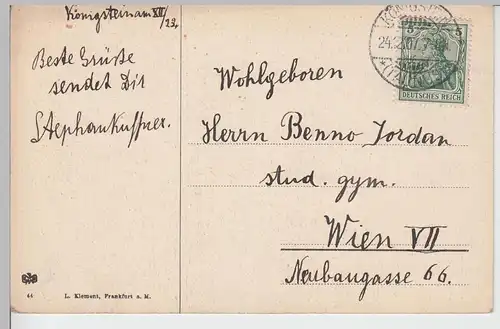 Königstein am XII/23.
Beste Grüße
sendet Dir
Stephan Kuffner.
44 L. Klement, Frankfurt a. M.
24.2.07. 7-8
(TAUNUS)
5 5
DEUTSCHES REICH
Wohlgeboren
Herrn Benno Jordan
stud. gym.
Wien VII
Neubaugasse 66.